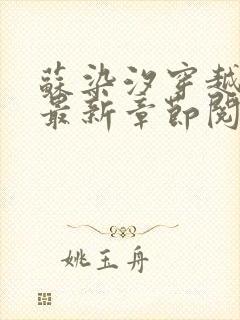 蘇染汐穿越
最新章節閱
姚玉舟